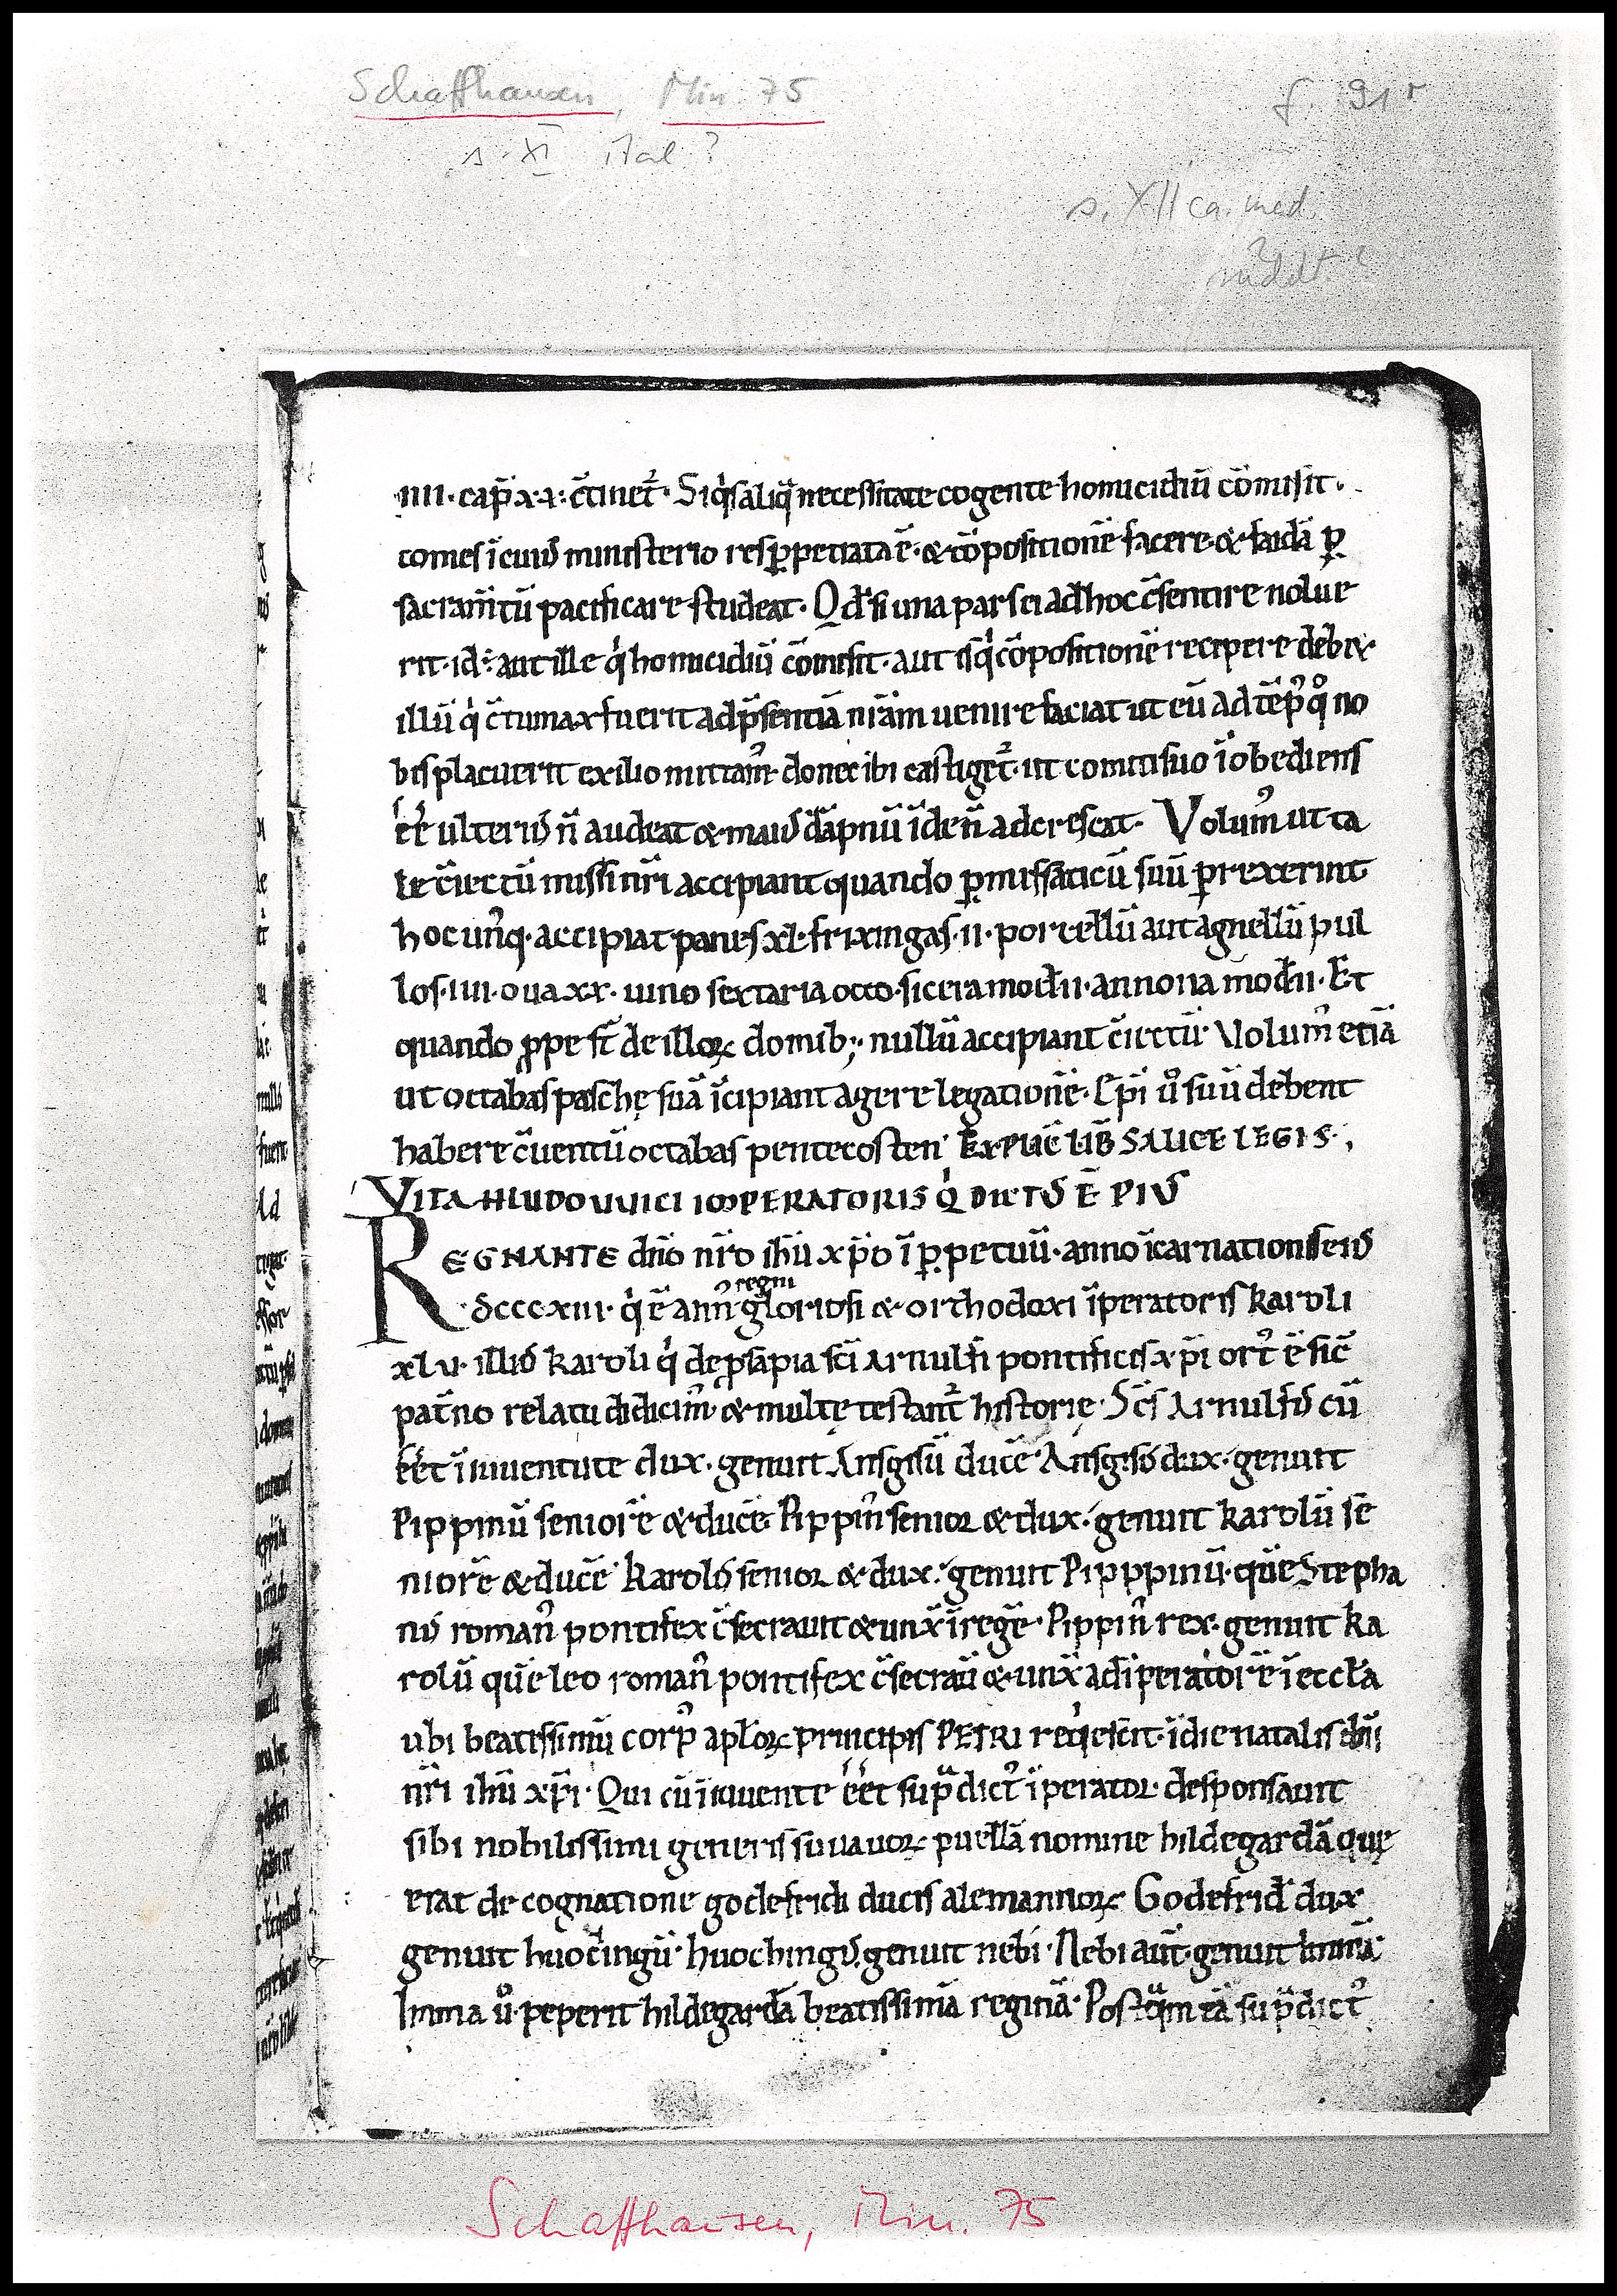 Schaffhausen, Min. 75
f. 91r
s. XI ital?
s. XII ca. med.
iiii · cap̄ · x · x · c̄tinet᷑ · Siq̇s aliq̄ necessitate cogente homicidiū cōmisit ·
comes ī cuiꝰ ministerio res ꝑpetrata ē · & cōpositionē facere · & faidā ꝑ
sacram̄tū pacificare studeat · Qd̄ si una pars ei ad hoc c̄sentire nolue
rit · id ÷ aut ille q̇ homicidiū cōmisit · aut is q̇ cōpositionē recipere debet ·
illū q̇ c̄tumax fuerit ad p̄sentiā nr̄am uenire faciat ut eū ad tēpꝰ qͦ no
bis placuerit exilio mittamꝰ donec ibi castiget᷑ · ut comiti suo īobediens
eē̄ ulteriꝰ n̄ audeat & maiꝰ dāpnū īde n̄ adcrescat · Volumꝰ ut ta
le c̄iectū missi nr̄i accipiant quando ꝑ missaticū suū ꝑrexerint
hoc unꝰq · accipiat panes xl · frixingas · ii · porcellū aut agnellū · pul
los · iiii · oua xx · uino sextaria octo · sicera mod̄ ii · annona mod̄ ii · Et
quando ꝓpe st̄ de illoꝝ domib; · nullū accipiant c̄iectū · Volumꝰ etiā
ut octabas paschę suā īcipiant agere legationē · Ep̄i u̇ͦ suū debent
habere c̄uentū octabas pentecosten · EXPLIC̄ LIB̄ SALICE LEGIS · ,
VITA HLUDOVVICI IMPERATORIS Q̇ DICTꝰ Ē PIꝰ
REGNANTE dn̄o nr̄o ihū xp̄o ī ꝑpetuū · anno īcarnationis eiꝰ
· dcccxiii · q̇ ē annꝰ regni gloriosi & orthodoxi īperatoris karoli
xlv · illiꝰ karoli q̇ de ꝓsapia sc̄i arnulfi pontificis xp̄i ortꝰ ē sic̄
pat̄no relatu didicimꝰ & multę testant᷑ historię · Sc̄s Arnulfꝰ cū
eē̄t ī iuuentute dux · genuit Ansgisū ducē · Ansgisꝰ dux · genuit
Pippinū seniorē & ducē · Pippinꝰ senior & dux · genuit karolū se
niorē & ducē · Karolꝰ senior & dux · genuit Pipppinū · quē Stepha
nꝰ romanꝰ pontifex c̄secrauit & unx̄ ī regē · Pippinꝰ rex · genuit ka
rolū quē leo romanꝰ pontifex c̄secrau̇ & unx̄ ad īperatorē ī eccl̄a
ubi beatissimū corpꝰ apl̄oꝝ principis PETRI req̇escit · ī die natalis dn̄i
nr̄i ihū xp̄i · Qui cū ī iuuente eē̄t sup̄dictꝰ īperator · desponsauit
sibi nobilissimi generis suuauoꝝ puellā nomine hildegardā quę
erat de cognatione godefridi ducis alemannoꝝ Godefrid̄ dux
genuit huochingū · huochingꝰ genuit nebi · Nebi aut̄ · genuit hnimā ·
Imma u̇ͦ · peperit hildegardā beatissimā reginā · Postq̄m eā sup̄dictꝰ
Schaffhausen, Min. 75